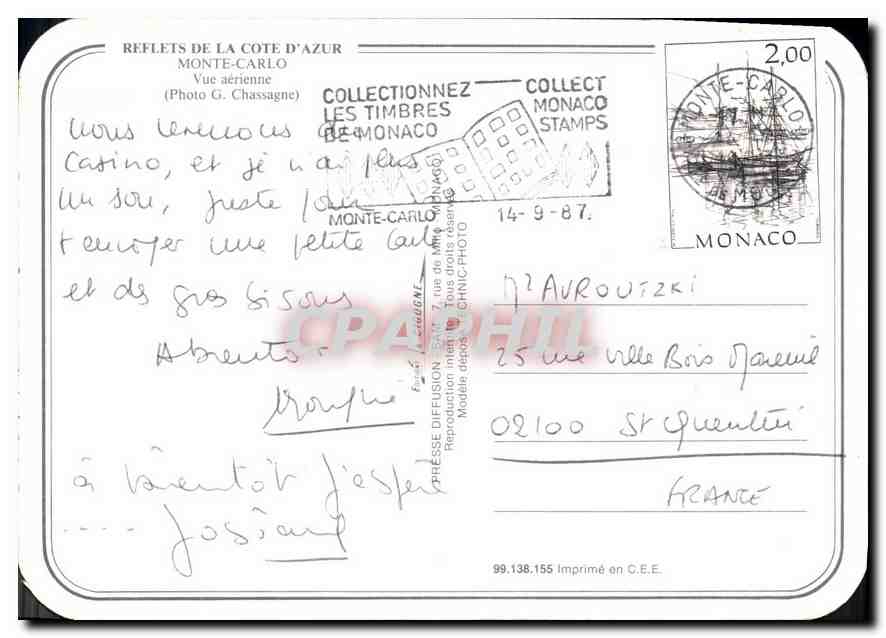 REFLETS DE LA COTE D'AZUR
MONTE-CARLO
Vue aérienne
(Photo G. Chassagne)
COLLECTIONNEZ
LES TIMBRES
DE MONACO
COLLECT
MONACO
STAMPS
MONTE-CARLO
14-9-87.
2,00
MONTE-CARLO
MONACO
nous venons du
Casino, et je n'ai plus
un sou, juste pour
t'envoyer une petite carte
et des gros bisous
A bientôt
à bientôt j'espère
.... Josiane
PRESSE DIFFUSION - SAM - 7, rue de Millo - MONACO
Reproduction interdite - Tous droits réservés
Modèle déposé TECHNIC-PHOTO
CPAPHIL
Mr AVROUTZKI
25 rue Ville Bois Mareuil
02100 St Quentin
FRANCE
99.138.155 Imprimé en C.E.E.